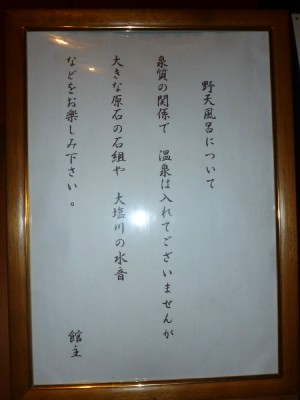 野天風呂について
泉質の関係で　温泉は入れてございませんが
大きな原石の石組や　大塩川の水音
などをお楽しみ下さい。
館主